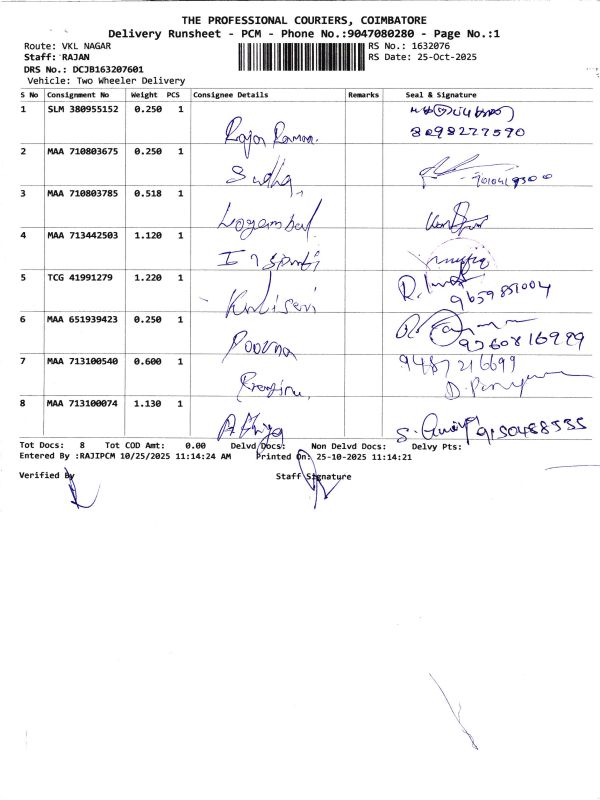 THE PROFESSIONAL COURIERS, COIMBATORE
Delivery Runsheet - PCM - Phone No.:9047080280 - Page No.:1
Route: VKL NAGAR RS No.: 1632076
Staff: RAJAN RS Date: 25-Oct-2025
DRS No.: DCJB163207601
Vehicle: Two Wheeler Delivery
S No Consignment No Weight PCS Consignee Details Remarks Seal & Signature
1 SLM 380955152 0.250 1
8098277590
2 MAA 710803675 0.250 1 Sudha
3 MAA 710803785 0.518 1
4 MAA 713442503 1.120 1
5 TCG 41991279 1.220 1
9659851004
6 MAA 651939423 0.250 1 Poorna
9360816999
7 MAA 713100540 0.600 1 9487216699
8 MAA 713100074 1.130 1 9150488535
Tot Docs: 8 Tot COD Amt: 0.00 Delvd Docs: Non Delvd Docs: Delvy Pts:
Entered By :RAJIPCM 10/25/2025 11:14:24 AM Printed On: 25-10-2025 11:14:21
Verified By Staff Signature